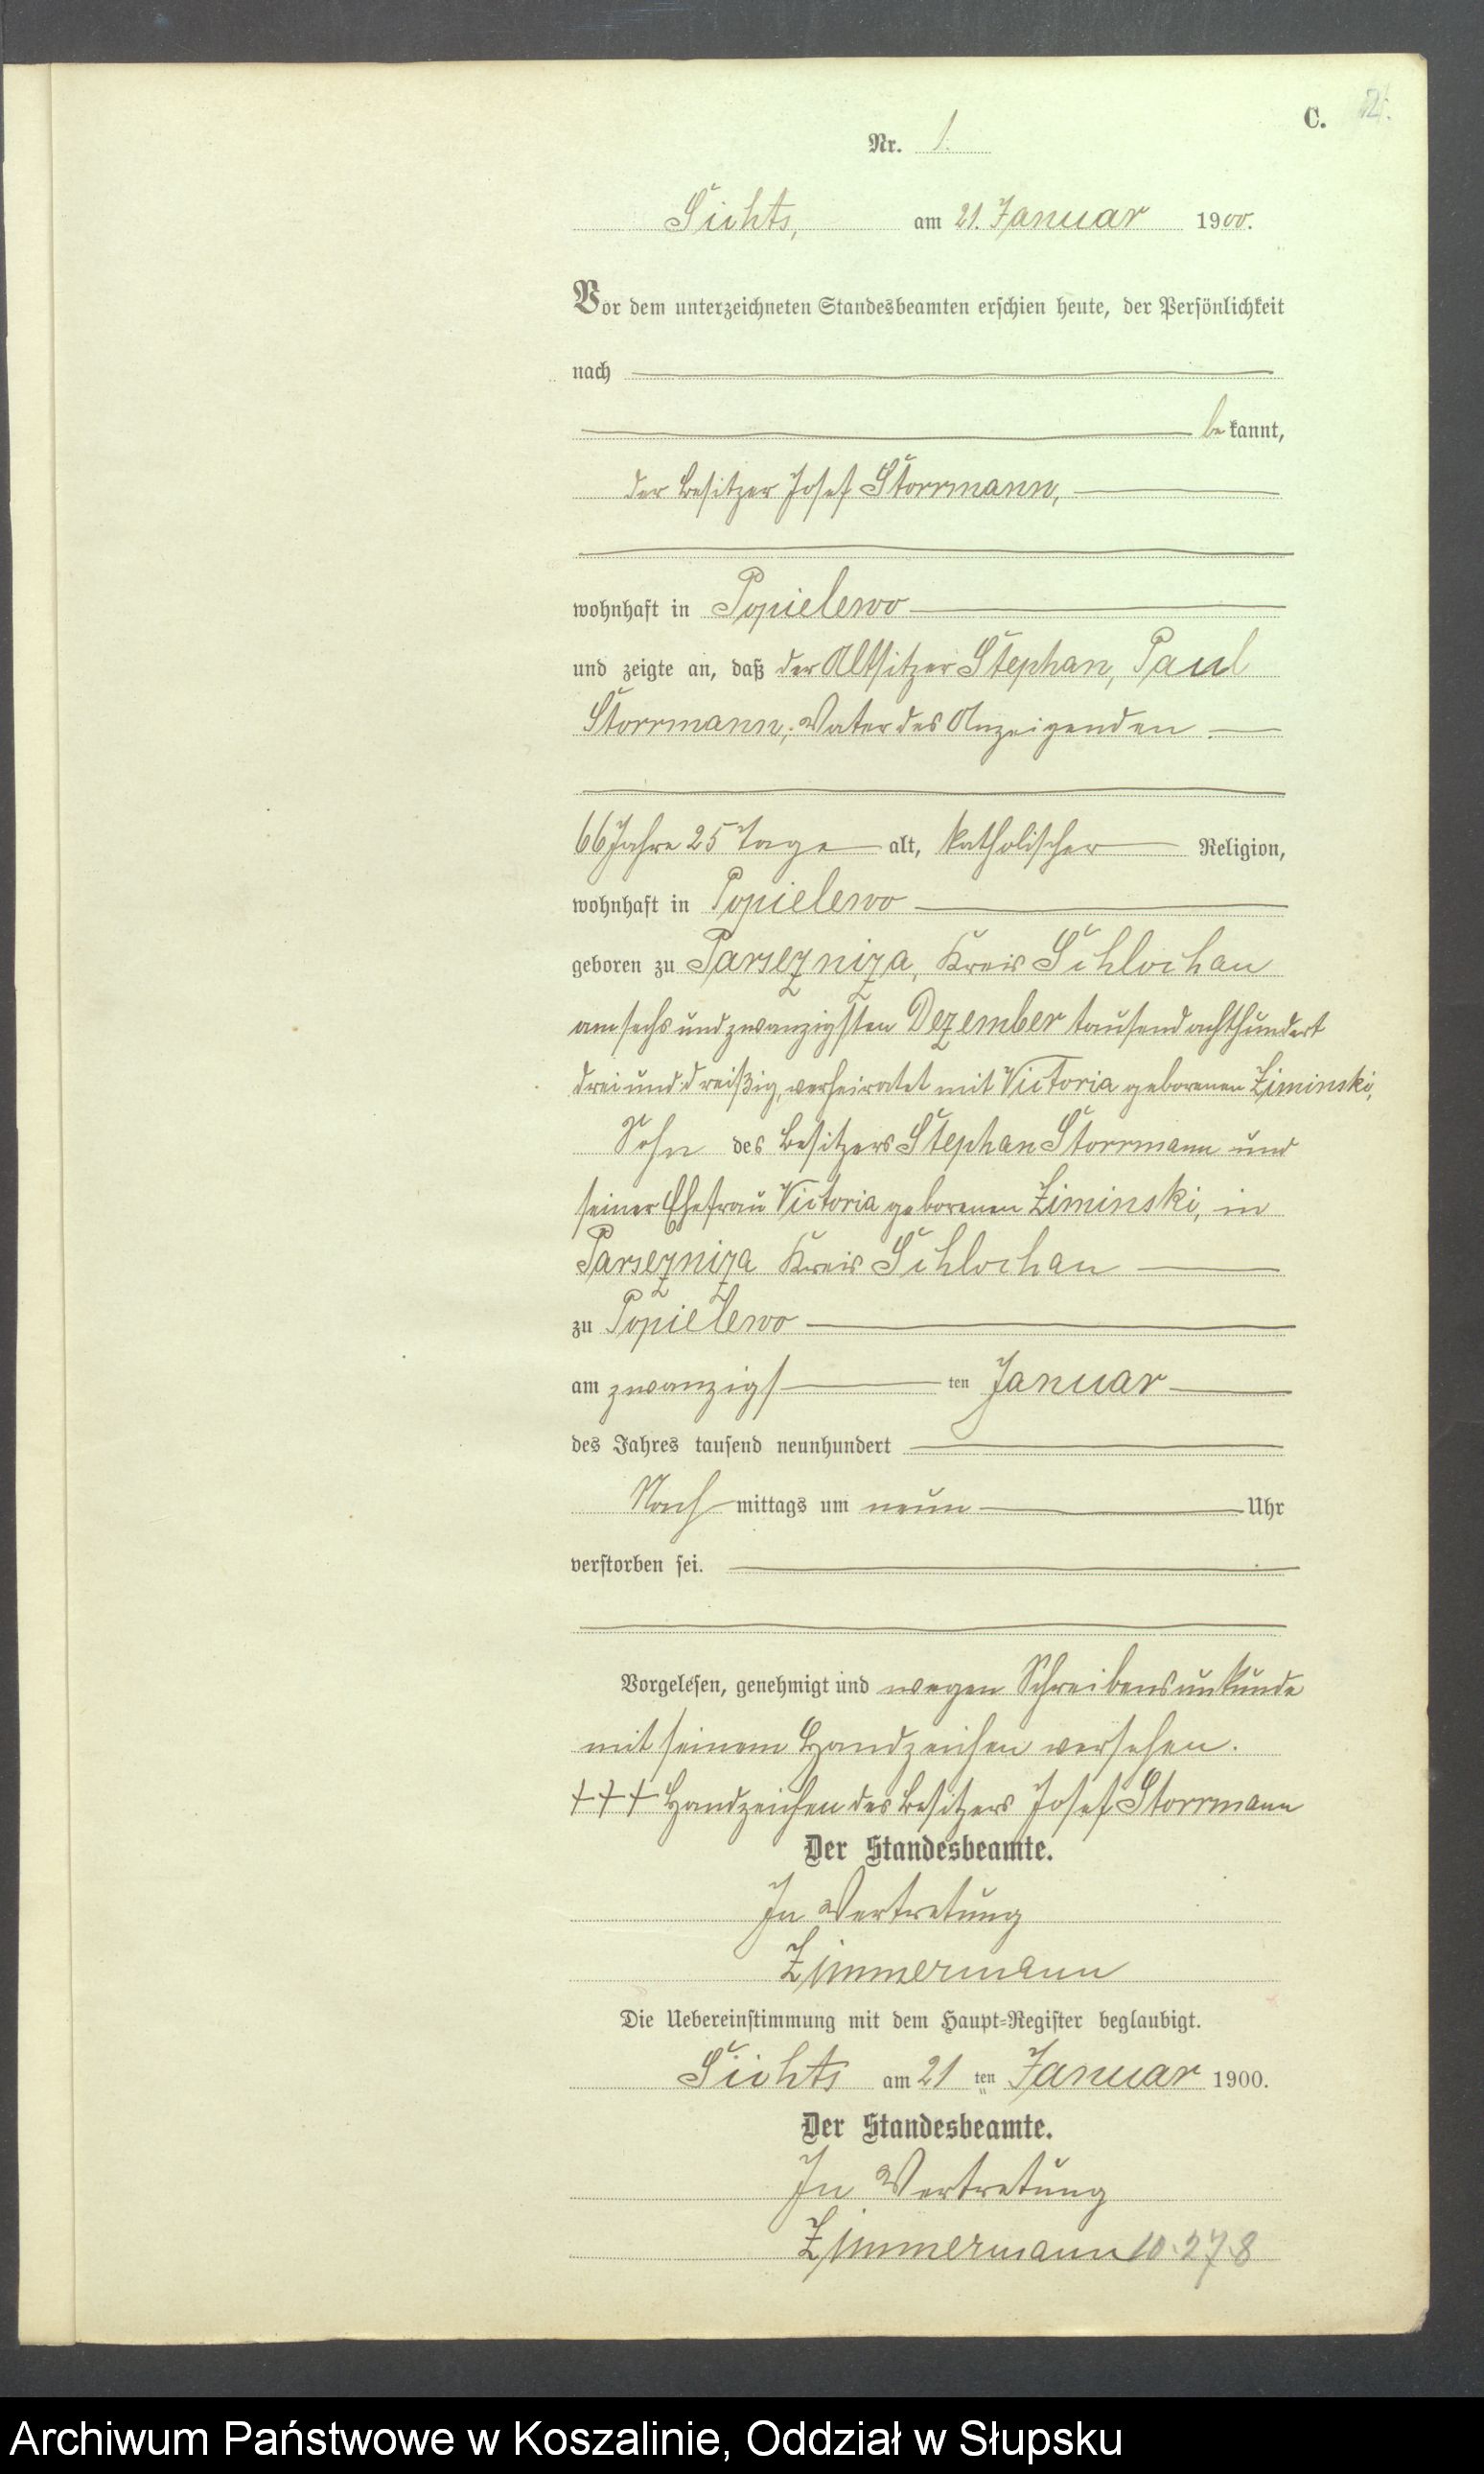 C. 2.
Nr. 1.
Sichts, am 21. Januar 1900.
Vor dem unterzeichneten Standesbeamten erschien heute, der Persönlichkeit
nach
be kannt,
der Besitzer Josef Storrmann,
wohnhaft in Popielewo
und zeigte an, daß der Altsitzer Stephan, Paul
Storrmann, Vater des Anzeigenden
66 Jahre 25 Tage alt, katholischer Religion,
wohnhaft in Popielewo
geboren zu Parsezniza, Kreis Schlochau
am sechs und zwanzigsten Dezember tausend achthundert
drei und dreißig, verheiratet mit Victoria geborenen Ziminski,
Sohn des Besitzers Stephan Storrmann und
seiner Ehefrau Victoria geborenen Ziminski, in
Parsezniza Kreis Schlochau
zu Popielewo
am zwanzigs ten Januar
des Jahres tausend neunhundert
Nach mittags um neun Uhr
verstorben sei.
Vorgelesen, genehmigt und wegen Schreibensunkunde
mit seinem Handzeichen versehen.
+++ Handzeichen des Besitzers Josef Storrmann
Der Standesbeamte.
In Vertretung
Zimmermann
Die Uebereinstimmung mit dem Haupt-Register beglaubigt.
Sichts am 21 ten Januar 1900.
Der Standesbeamte.
In Vertretung
Zimmermann 10.278
Archiwum Państwowe w Koszalinie, Oddział w Słupsku